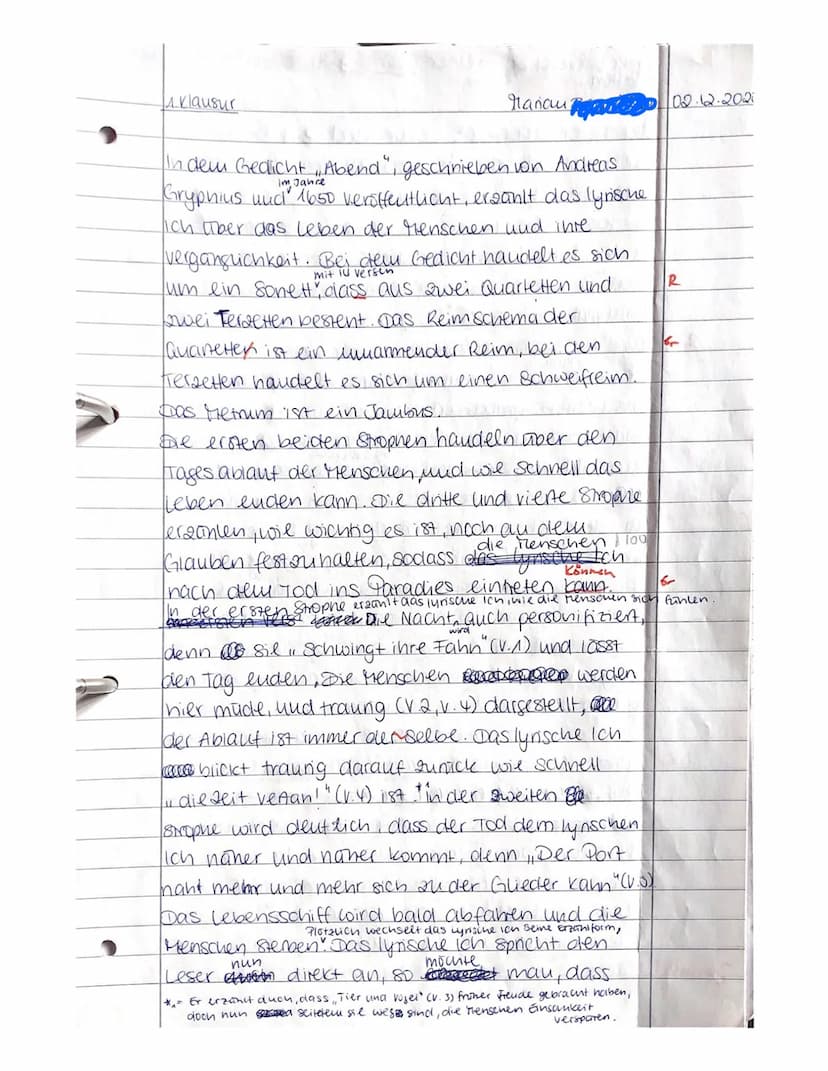 1. Klausur
Mariam
02.12.202
In dem Gedicht „Abend", geschrieben von Andreas
im Jahre
Gryphius und 1650 veröffentlicht, erzählt das lyrische
Ich über das Leben der Menschen und ihre
Vergänglichkeit. Bei dem Gedicht handelt es sich
mit 14 Versen
um ein Sonett, dass aus zwei Quartetten und
R
zwei Terzetten besteht. Das Reimschema der
Quartetten ist ein umarmender Reim, bei den
Gr
Terzetten handelt es sich um einen Schweifreim.
Das Metrum ist ein Jambus.
Die ersten beiden Strophen handeln über den
Tagesablauf der Menschen, und wie schnell das
Leben enden kann. Die dritte und vierte Strophe
erzählen, wie wichtig es ist, noch an dem
die Menschen
Glauben festzuhalten, sodass das lyrische Ich
können
nach dem Tod ins Paradies eintreten kann.
Gr
In der ersten Strophe erzählt das lyrische Ich, wie die Menschen sich fühlen.
Die Nacht wird auch personifiziert,
denn sie „Schwingt ihre Fahn" (V.1) und lässt
den Tag enden. Die Menschen werden
hier müde, und traurig (V.2, V.4) dargestellt,
der Ablauf ist immer der selbe. Das lyrische Ich
blickt traurig darauf zurück wie schnell
„die Zeit vertan!" (V.4) ist. * In der zweiten
Strophe wird deutlich, dass der Tod dem lyrischen
Ich näher und näher kommt, denn „Der Port
naht mehr und mehr sich zu der Glieder Kahn" (V.5)
Das Lebensschiff wird bald abfahren und die
Plötzlich wechselt das lyrische Ich seine Erzählform,
Menschen sterben. Das lyrische Ich spricht den
nun möchte
Leser direkt an, so man, dass
*₁= Er erzählt auch, dass „Tier und Vogel" (V.3) früher Freude gebracht haben,
doch nun seitdem sie weg sind, die Menschen Einsamkeit
verspüren.